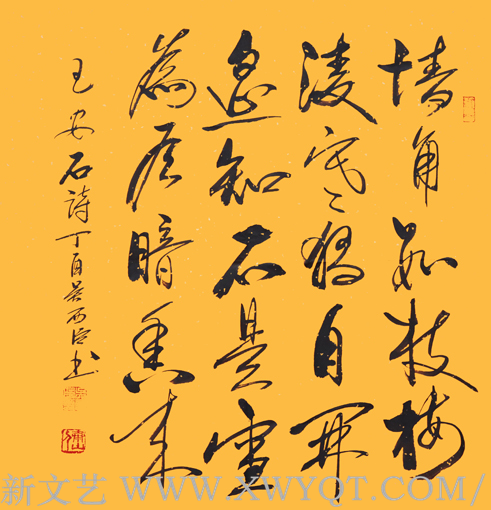 墙角数枝梅
凌寒独自开
遥知不是雪
为有暗香来
王安石詩丁酉吴西书
新文艺 WWW.XWYQT.COM/